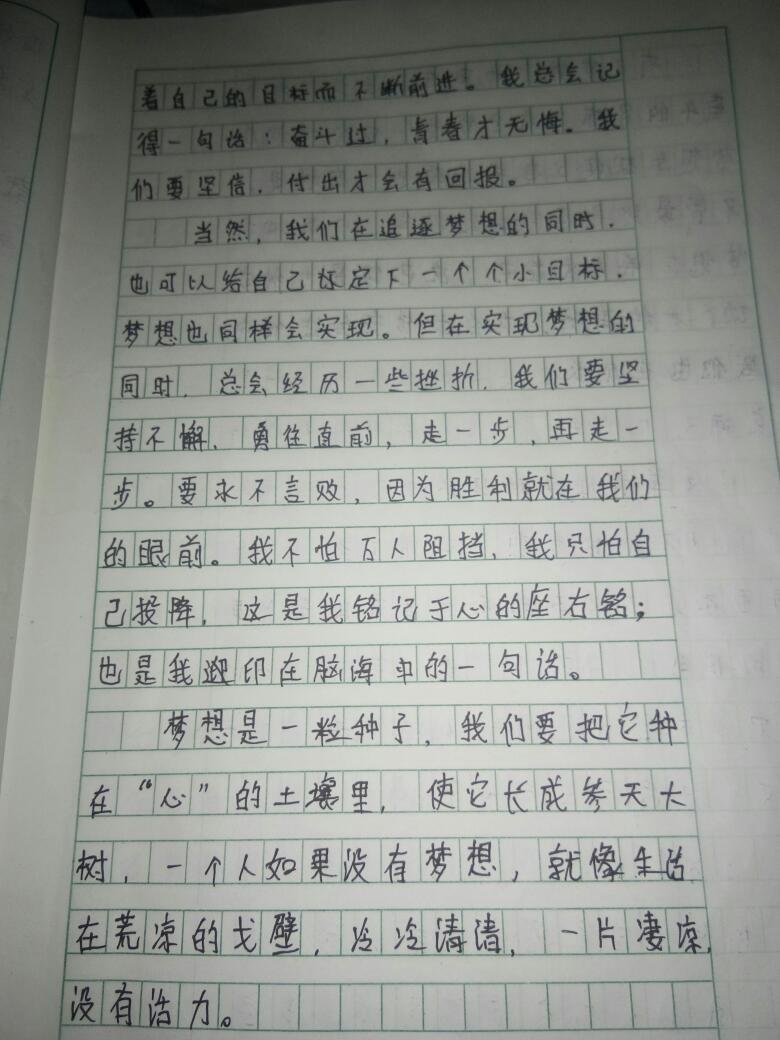 着自己的目标而不断前进。我总会记
得一句话：奋斗过，青春才无悔。我
们要坚信，付出才会有回报。
当然，我们在追逐梦想的同时，
也可以给自己标定下一个个小目标，
梦想也同样会实现。但在实现梦想的
同时，总会经历一些挫折，我们要坚
持不懈、勇往直前，走一步，再走一
步。要永不言败，因为胜利就在我们
的眼前。我不怕万人阻挡，我只怕自
己投降，这是我铭记于心的座右铭；
也是我印在脑海中的一句话。
梦想是一粒种子，我们要把它种
在“心”的土壤里，使它长成参天大
树，一个人如果没有梦想，就像生活
在荒凉的戈壁，冷冷清清，一片凄凉，
没有活力。